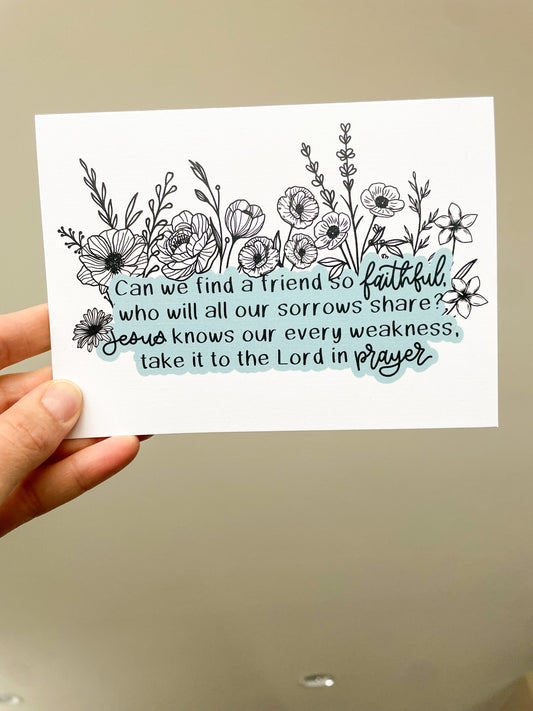 Can we find a friend so faithful,
who will all our sorrows share?
Jesus knows our every weakness,
take it to the Lord in prayer